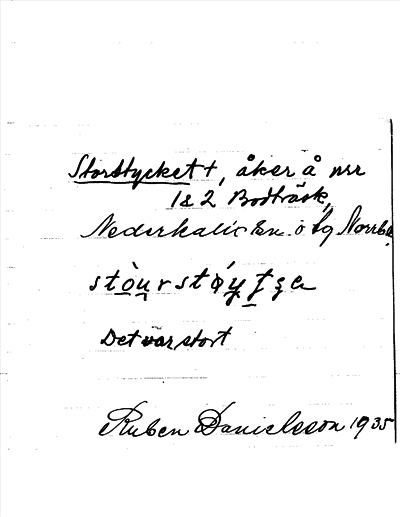 Storstycket +, åker å nrr
1 & 2 Bodträsk,
Nederkalix sn. o lg Norrb.
stòu̯rstǿy̯ʈʂa
Det var stort
Ruben Danielsson 1935